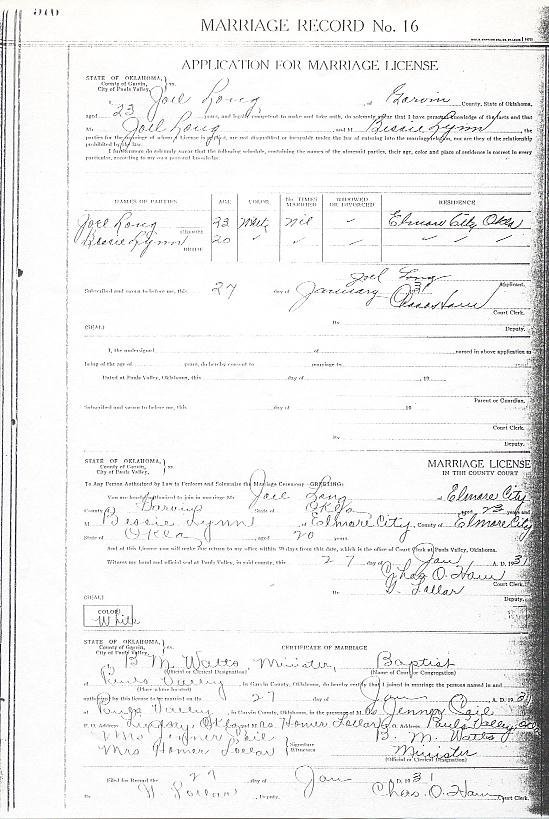 MARRIAGE RECORD No. 16
APPLICATION FOR MARRIAGE LICENSE
STATE OF OKLAHOMA,
County of Garvin, ss.
City of Pauls Valley,
Joel Long of Garvin County, State of Oklahoma,
aged 23 years, and legally competent to make and take oath, do solemnly swear that I have personal knowledge of the facts and that
Mr. Joel Long and M Bessie Lynn, the
parties for the marriage of whom a License is prayed, are not disqualified or incapable under the law of entering into the marriage relation, nor are they of the relationship
prohibited by the law.
I furthermore do solemnly swear that the following schedule, containing the names of the aforesaid parties, their age, color and place of residence is correct in every
particular, according to my own personal knowledge.
NAMES OF PARTIES AGE COLOR No. TIMES MARRIED WIDOWED OR DIVORCED RESIDENCE
Joel Long GROOM 23 White Nil ✓ Elmore City Okla
Bessie Lynn BRIDE 20 ✓ ✓ ✓ ✓ ✓ ✓
Joel Long Applicant.
Subscribed and sworn to before me, this 27 day of January
Court Clerk.
By
(SEAL) Deputy.
I, the undersigned of named in above application as
being of the age of years, do hereby consent to marriage to
Dated at Pauls Valley, Oklahoma, this day of , 19
Parent or Guardian.
Subscribed and sworn to before me, this day of 19
Court Clerk.
By
Deputy.
STATE OF OKLAHOMA, MARRIAGE LICENSE
County of Garvin, ss. IN THE COUNTY COURT
City of Pauls Valley,
To Any Person Authorized by Law to Perform and Solemnize the Marriage Ceremony—GREETING:
You are hereby authorized to join in marriage Mr. Joel Long of Elmore City
County of Garvin State of Okla aged 23 years and
M Bessie Lynn of Elmore City, County of Elmore City
State of Okla, aged 20 years.
And of this License you will make due return to my office within 30 days from this date, which is the office of Court Clerk at Pauls Valley, Oklahoma.
Witness my hand and official seal at Pauls Valley, in said county, this 27 day of Jan A. D. 1931
Chas O. Court Clerk.
By Lollar
(SEAL) Deputy.
COLOR
White
STATE OF OKLAHOMA,
County of Garvin, ss. CERTIFICATE OF MARRIAGE
City of Pauls Valley,
B. M. Watts Minister, Baptist
(Official or Clerical Designation) (Name of Court or Congregation)
Pauls Valley, in Garvin County, Oklahoma, do hereby certify that I joined in marriage the persons named in and
(Place where located)
authorized by this license to be married on the 27 day of Jan A. D. 1931
Pauls Valley, in Garvin County, Oklahoma, in the presence of
P. O. Address Lindsay, Okla Mrs Homer Lollar P. O. Address Pauls Valley, Okla
B. M. Watts
Mrs Homer Lollar Signature Witnesses Minister
(Official or Clerical Designation)
Filed for Record the 27 day of Jan A. D. 1931
By Lollar, Deputy. Chas. O. Court Clerk.